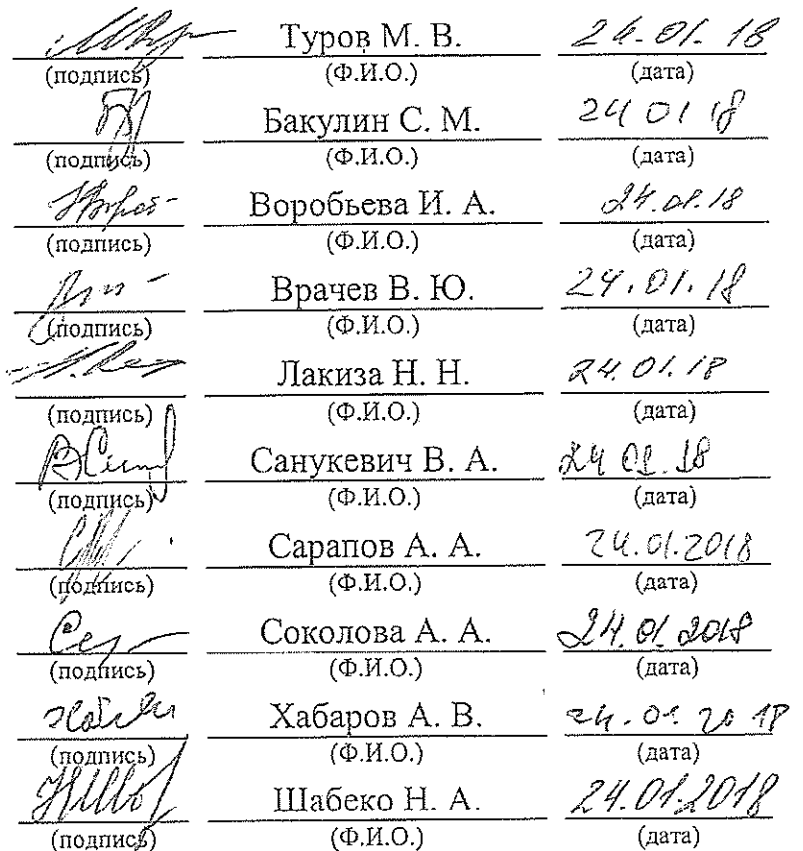 Туров М. В. 24.01.18
(подпись) (Ф.И.О.) (дата)
Бакулин С. М. 24 01 18
(подпись) (Ф.И.О.) (дата)
Воробьева И. А. 24.01.18
(подпись) (Ф.И.О.) (дата)
Врачев В. Ю. 24.01.18
(подпись) (Ф.И.О.) (дата)
Лакиза Н. Н. 24.01.18
(подпись) (Ф.И.О.) (дата)
Санукевич В. А. 24 01.18
(подпись) (Ф.И.О.) (дата)
Сарапов А. А. 24.01.2018
(подпись) (Ф.И.О.) (дата)
Соколова А. А. 24.01.2018
(подпись) (Ф.И.О.) (дата)
Хабаров А. В. 24.01.2018
(подпись) (Ф.И.О.) (дата)
Шабеко Н. А. 24.01.2018
(подпись) (Ф.И.О.) (дата)